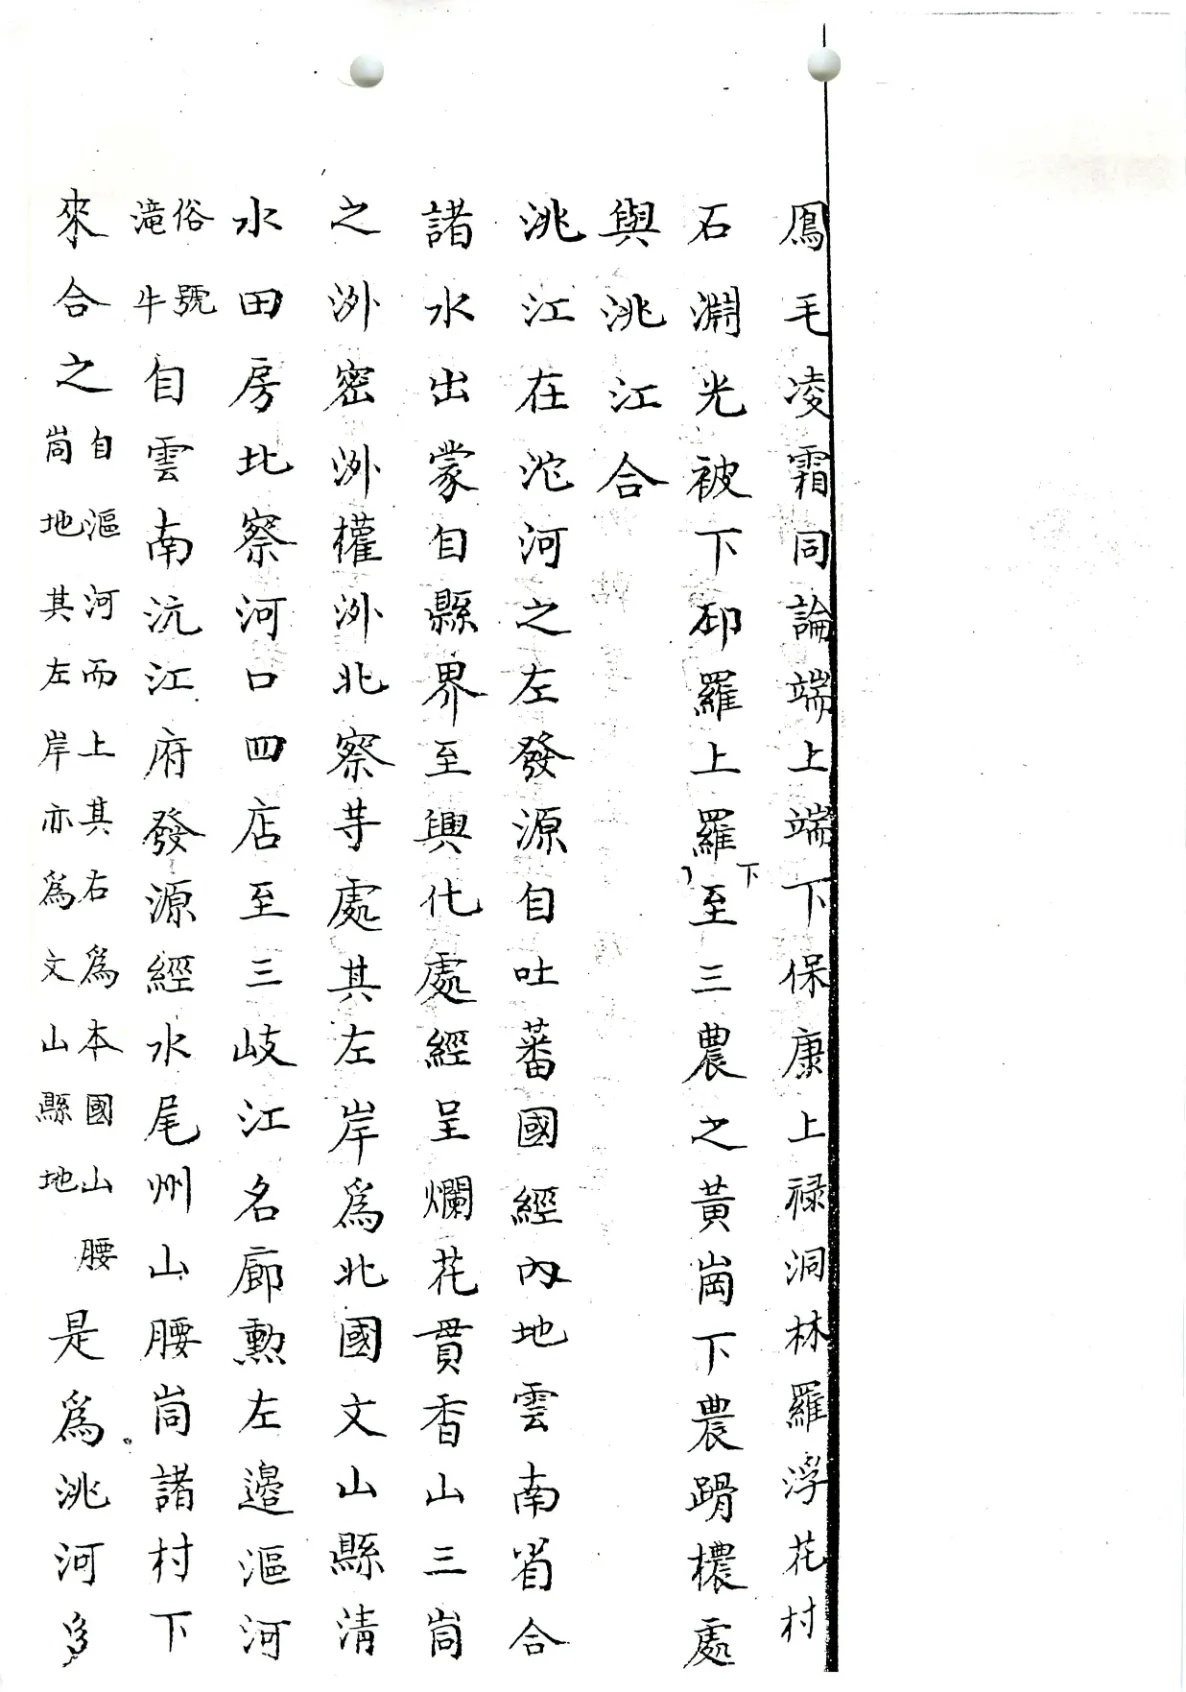 鳳毛凌霜同論端上端下保康上禄洞林羅浮花村
石淵光被下邳羅上羅下至三農之黃崗下農蹐檂處
與洮江合
洮江在沱河之左發源自吐蕃國經內地雲南省合
諸水出蒙自縣界至興化處經呈爛花貫香山三峝
之洲密洲權洲北察芽處其左岸為北國文山縣清
水田房北察河口四店至三岐江名廊勲左邉漚河
俗號滝牛自雲南沅江府發源經水尾州山腰峝諸村下
來合之自漚河而上其右為本國山腰峝地其左岸亦為文山縣地是為洮河多